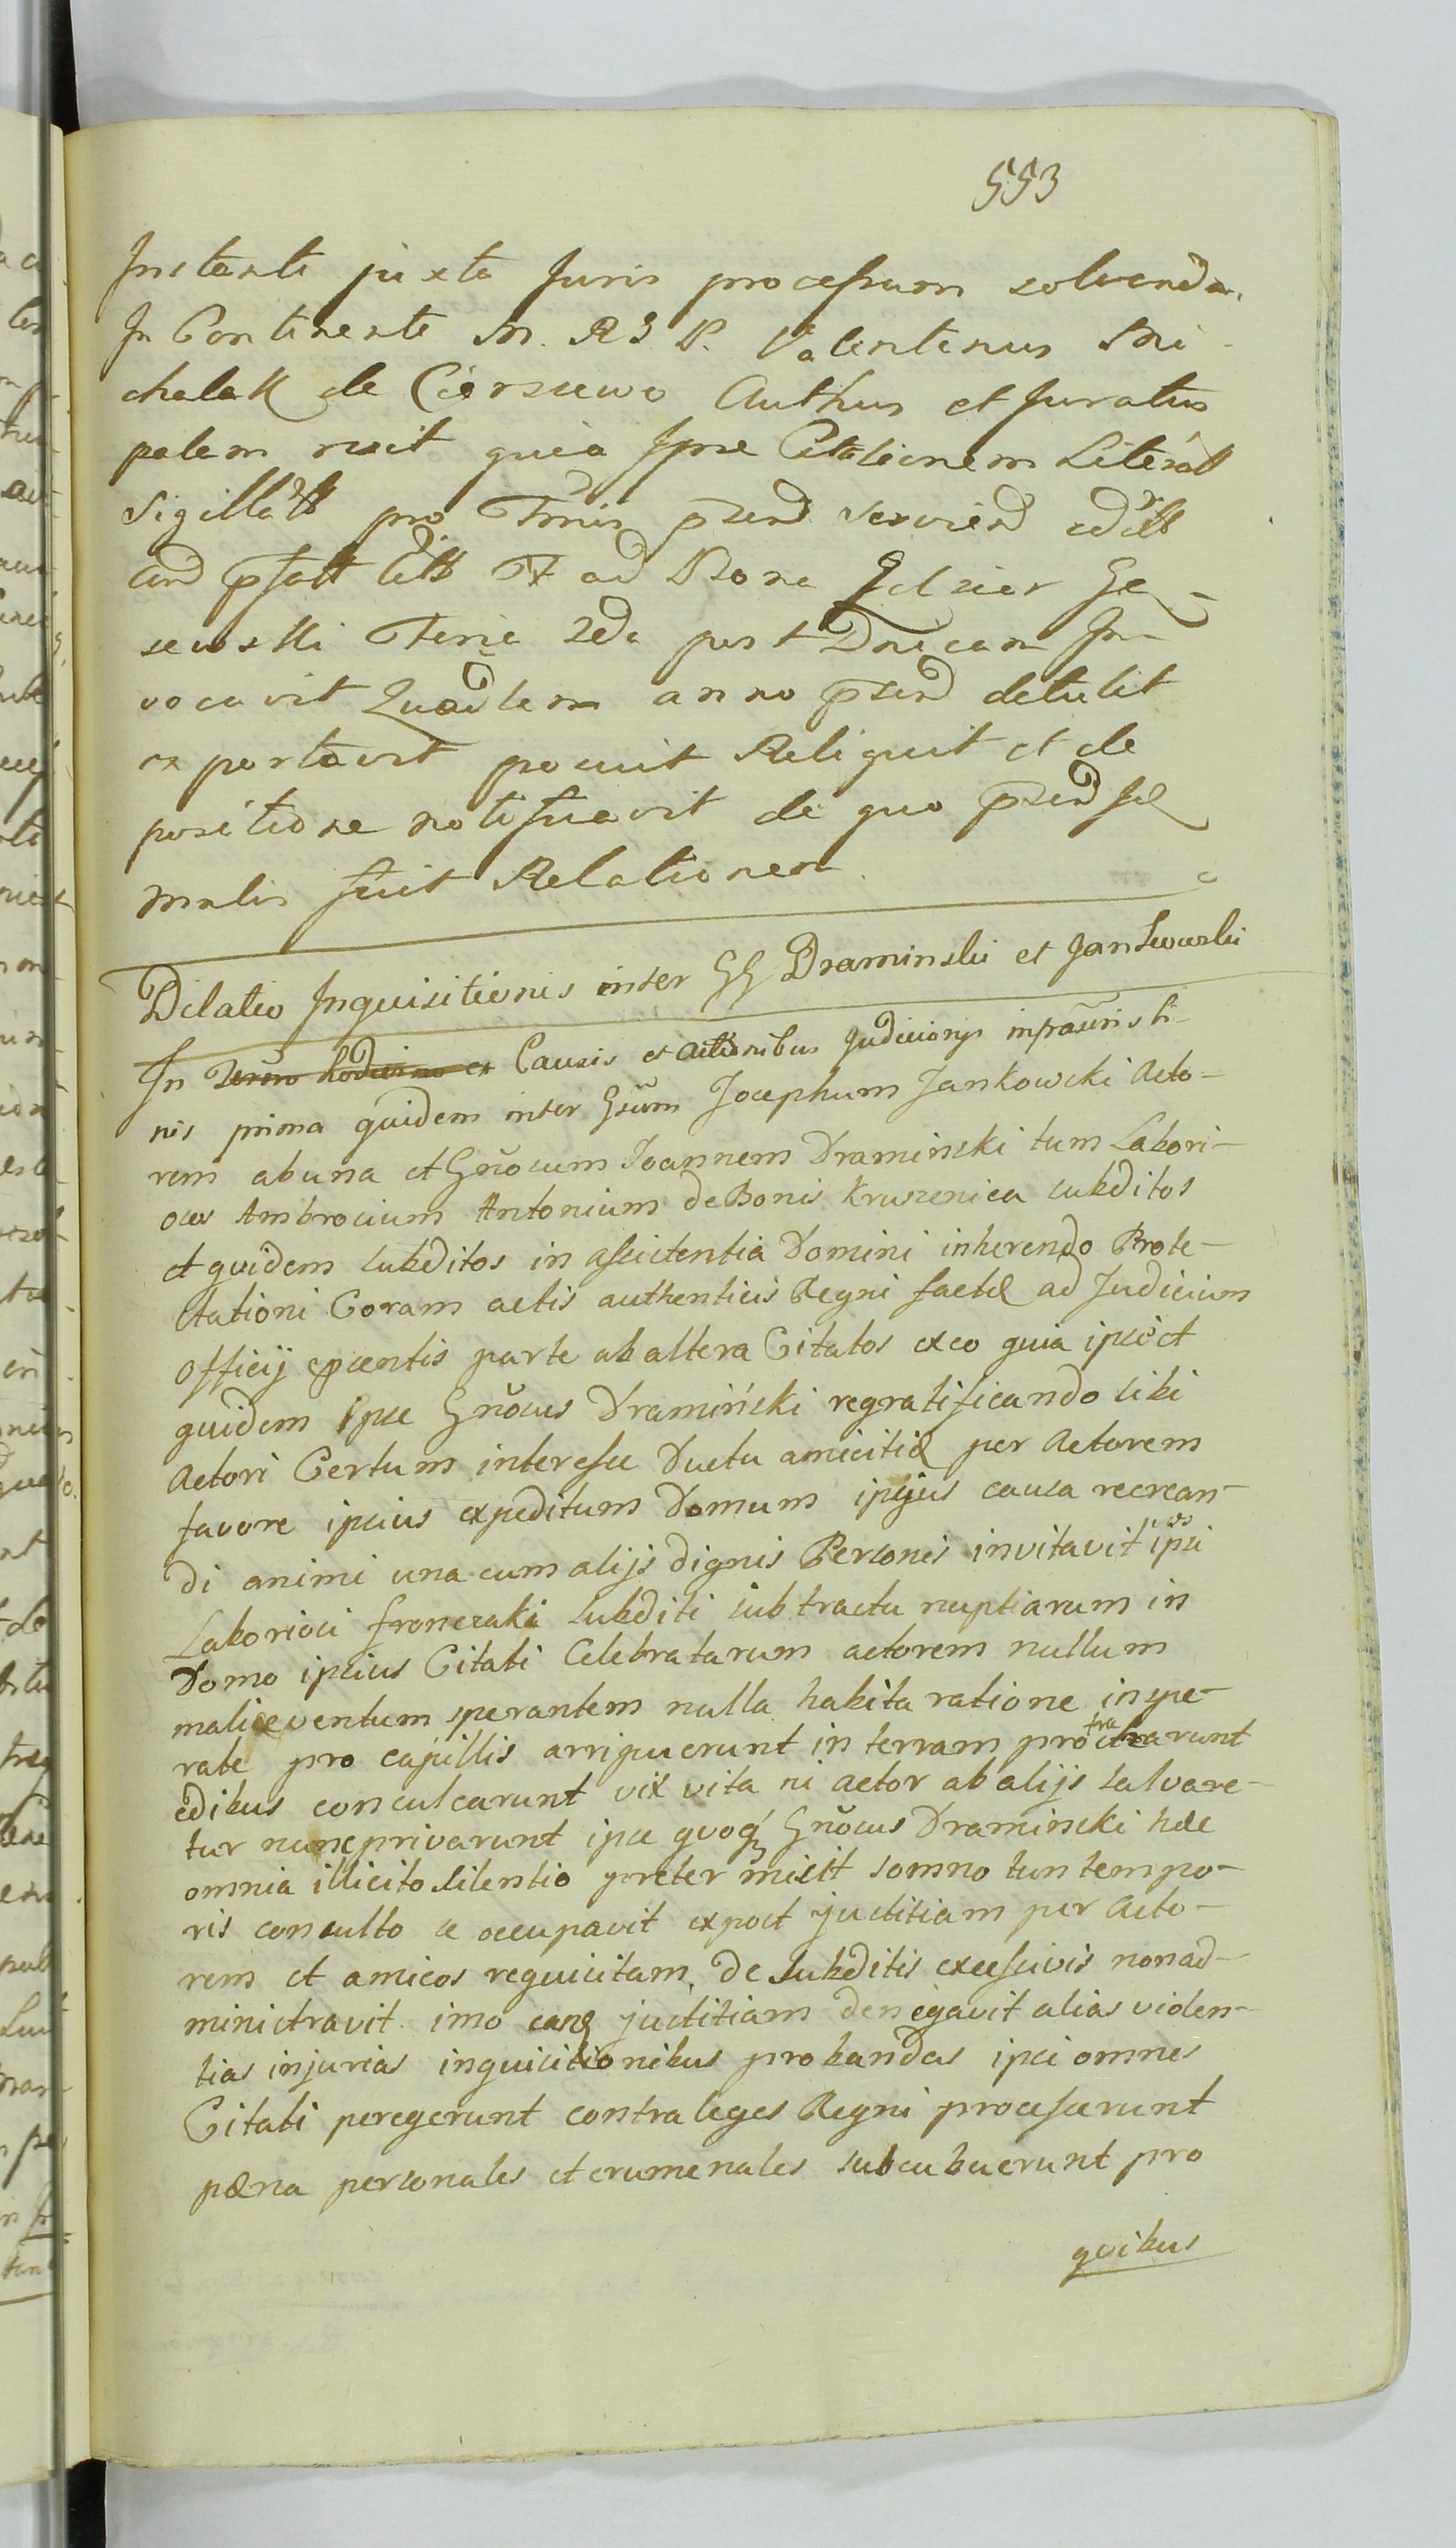 553
Instanti juxta Juris processum solvenda.
In Continente M. R S P. Valentinus Mi-
chalak de Ciersuwo Authus et Juratus
palam recit quia Ipse Citationem Literāll
Sigillatt pro Tmis pserd serviend editt
ad Bona
sewski Feria 2da post Dnicam In-
vocavit Quadlem anno pserd detulit
exportavit posuit Reliquit et de
positione notificavit de quo pserd
malis fuit Relationem
Dilatio Inquisitionis inter GG Draminski et Jankowski
In Termo hodierno et Causis et actionibus Judiciorijs infrascris ti-
nis prima quidem inter Gsum Josephum Jankowski Acto-
rem ab una et Gnosum Joannem Dramiński tum Labori-
osos Ambrosium Antonium de Bonis Kruszenica subditos
et quidem subditos in assistentia Domini inherendo Prote-
stationi Coram actis authenticis Regni factæ ad Judicium
Officij psentis parte ab altera Citatos ex eo quia ipsi et
quidem Ipse Gnosus Dramiński regratificando sibi
Actori Certum interesse Ductu amicitiæ per Actorem
favore ipsius expeditum Domum ipsius causa recrean-
di animi una cum alijs dignis Personis invitavit ipsi os
Laboriosi fronczaki subditi sub tractu nuptiarum in
Domo ipsius Citati Celebratarum actorem nullum
mali eventum sperantem nulla habita ratione inspe-
rate pro capillis arripuerunt in terram protraxarunt
edibus conculcarunt vix vita ni actor ab alijs salvare-
tur nunc privarunt ipse quoq Gnosus Dramiński hæc
omnia illicito silentio preter misit somno tun tempo-
ris consulto se occupavit expost justitiam per Acto-
rem et amicos requisitam de subditis excessivis non ad-
ministravit imo eanq justitiam denegavit alias violen-
tias injurias inquisitionibus probandas ipsi omnes
Citati peregerunt contra leges Regni processerunt
pæna personales et crumenales subcubuerunt pro
quibus